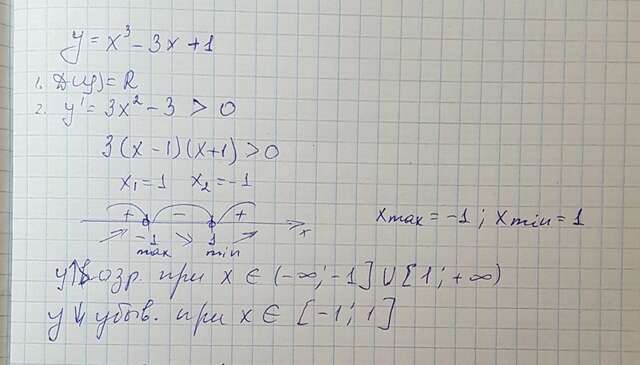 y = x³ - 3x + 1
1. D(y) = R
2. y' = 3x² - 3 > 0
3(x - 1)(x + 1) > 0
x₁ = 1 x₂ = -1
+ - +
-1 1 x
max min
xmax = -1 ; xmin = 1
y↑ возр. при x ∈ (-∞; -1] ∪ [1; +∞)
y↓ убыв. при x ∈ [-1; 1]